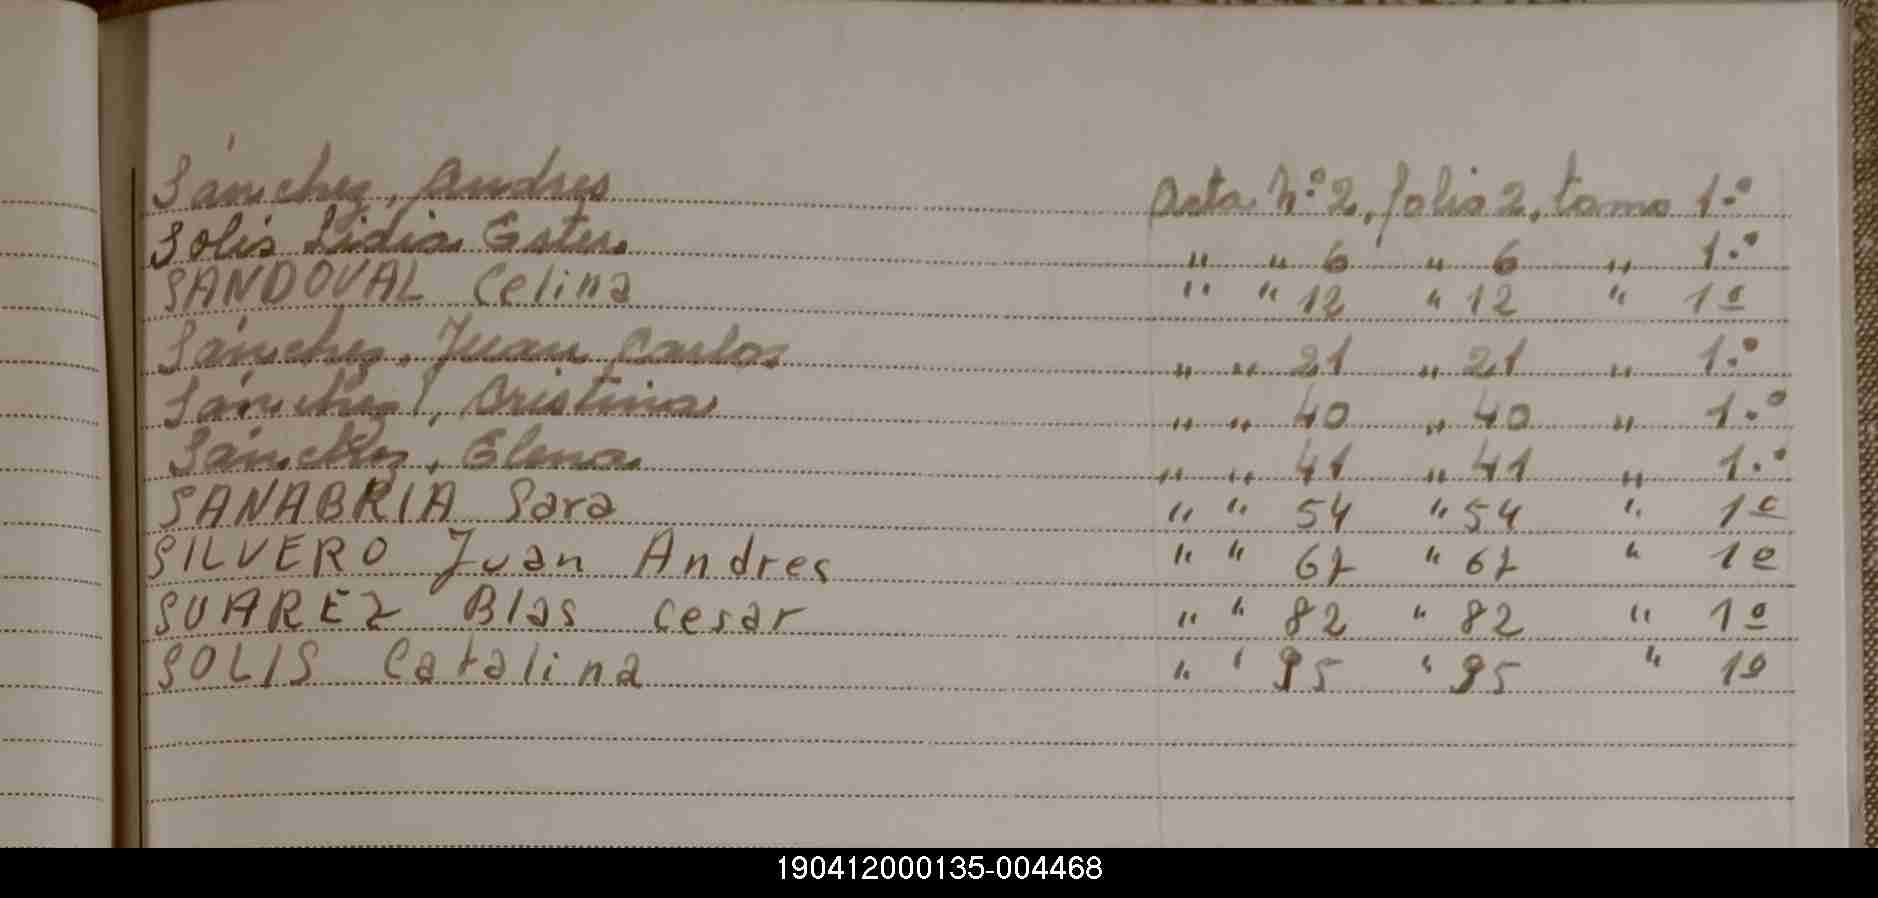 Sánchez, Andres Acta N.º 2, folio 2, tomo 1.º
Solis Lidia Ester. " " 6 " 6 " 1.º
SANDOVAL Celina " " 12 " 12 " 1º
Sánchez, Juan Carlos " " 21 " 21 " 1.º
Sánchez, Cristina " " 40 " 40 " 1.º
Sánchez, Elena " " 41 " 41 " 1.º
SANABRIA Sara " " 54 " 54 " 1º
SILVERO Juan Andres " " 67 " 67 " 1º
SUAREZ Blas Cesar " " 82 " 82 " 1º
SOLIS Catalina " " 95 " 95 " 1º
190412000135-004468